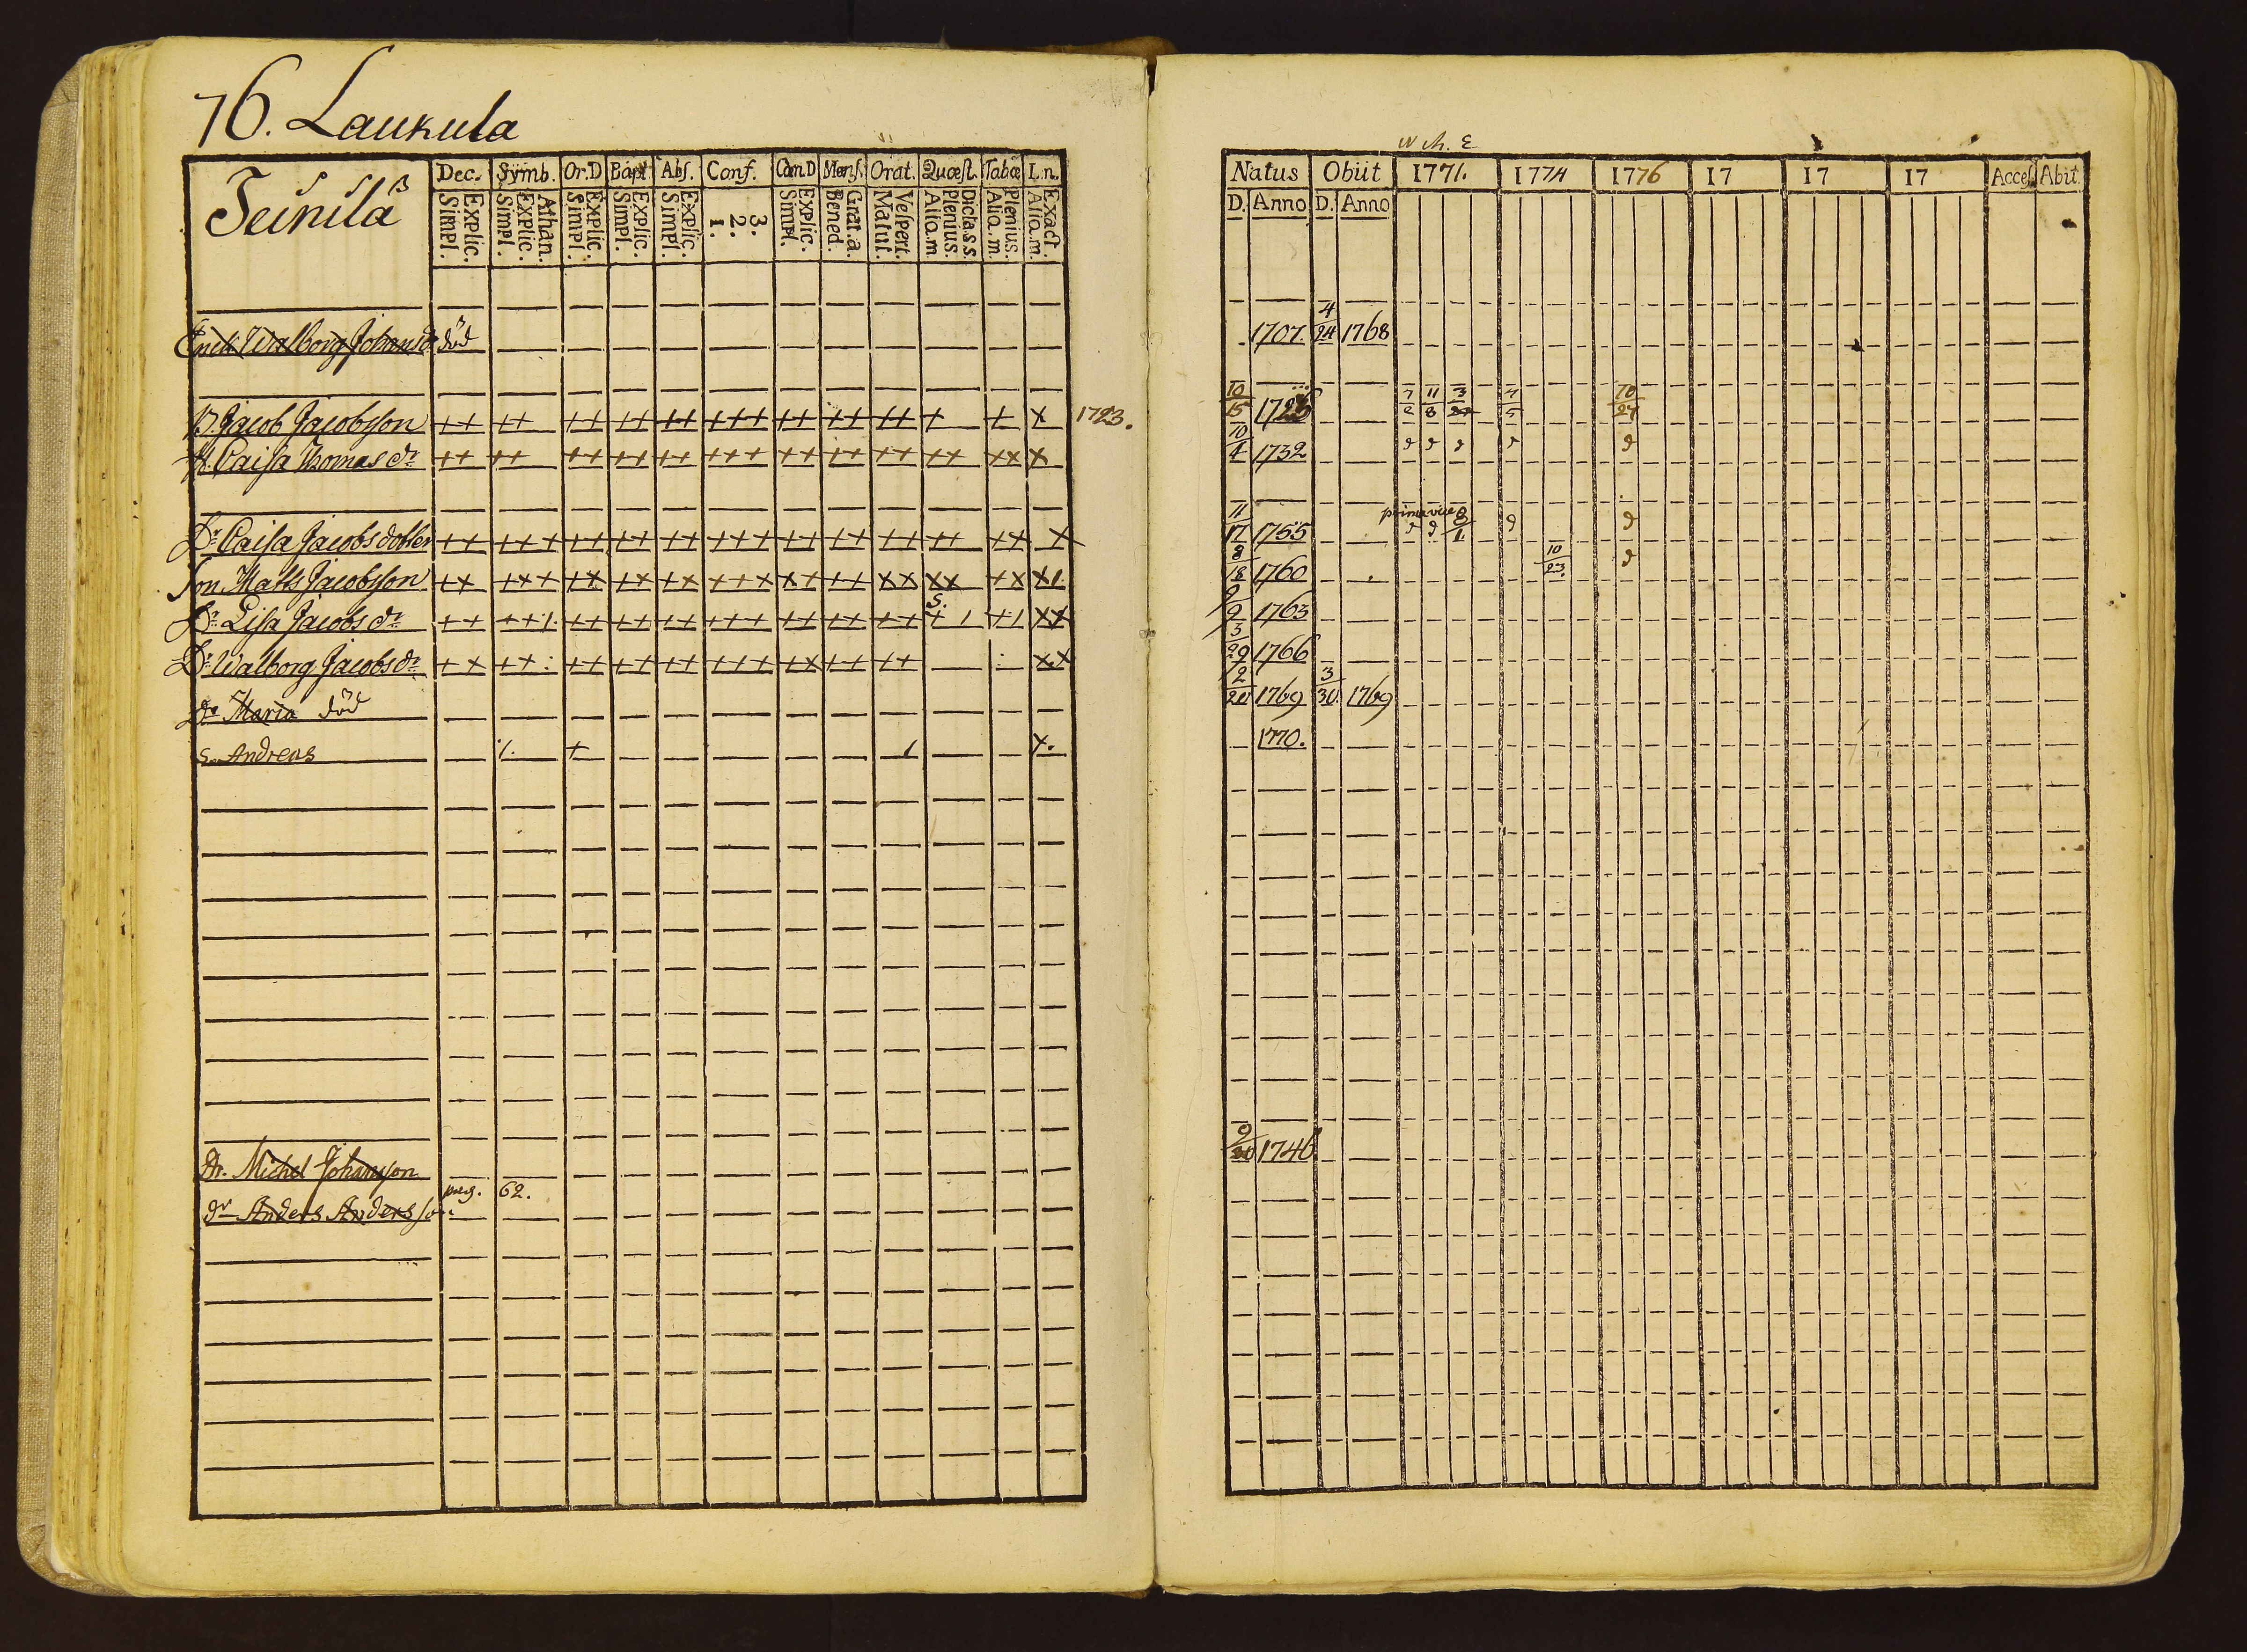 76. Laukula
Teinilä
Dec. Symb. Or.D Bapt. Abs. Conf. Cœn.D Mens. Orat. Quæst. Tabæ L.n.
Explic. Simpl. Athan. Explic. Simpl. Explic. Simpl. Explic. Simpl. Explic. Simpl. 3. 2. 1. Explic. Simpl. Grat. a. Bened. Vespert. Matut. Dicta.s.s Plenius. Aliq.m. Plenius. Aliq.m. Exact. Aliq.m.
Enck. Walborg Johansdr död
B. Jacob Jacobsson ++ ++ ++ ++ ++ +++ ++ ++ ++ + + x 1723.
H. Caisa Thomas dr ++ ++ ++ ++ ++ +++ ++ ++ ++ ++ xx x
Dr Caisa Jacobs dotter ++ +++ ++ ++ ++ +++ ++ ++ ++ ++ ++ x
Son Matts Jacobsson ++ +++ ++ ++ ++ +++ ++ ++ xx xx +x x1.
Dr Lisa Jacobs dr ++ ++ ++ ++ ++ +++ ++ ++ ++ S. + 1 +1 xx
Dr Walborg Jacobs dr ++ ++: ++ ++ ++ +++ ++ ++ ++ xx
Dr Maria död
S. Andreas + x.
Dr. Michel Johansson
dr Anders Andersson pag. 62.
Natus Obiit 1771. 1774 1776 17 17 17 Acces. Abit.
D. Anno D. Anno
1707. 4/24 1768
10/15 7/2 11/8 4/5 10/27
10/4 1732
11/17 1755 prima vice 8/1
8/18 1760 10/23.
9/9 1763
3/29 1766
2/20 1769 3/30. 1769
1770.
1746